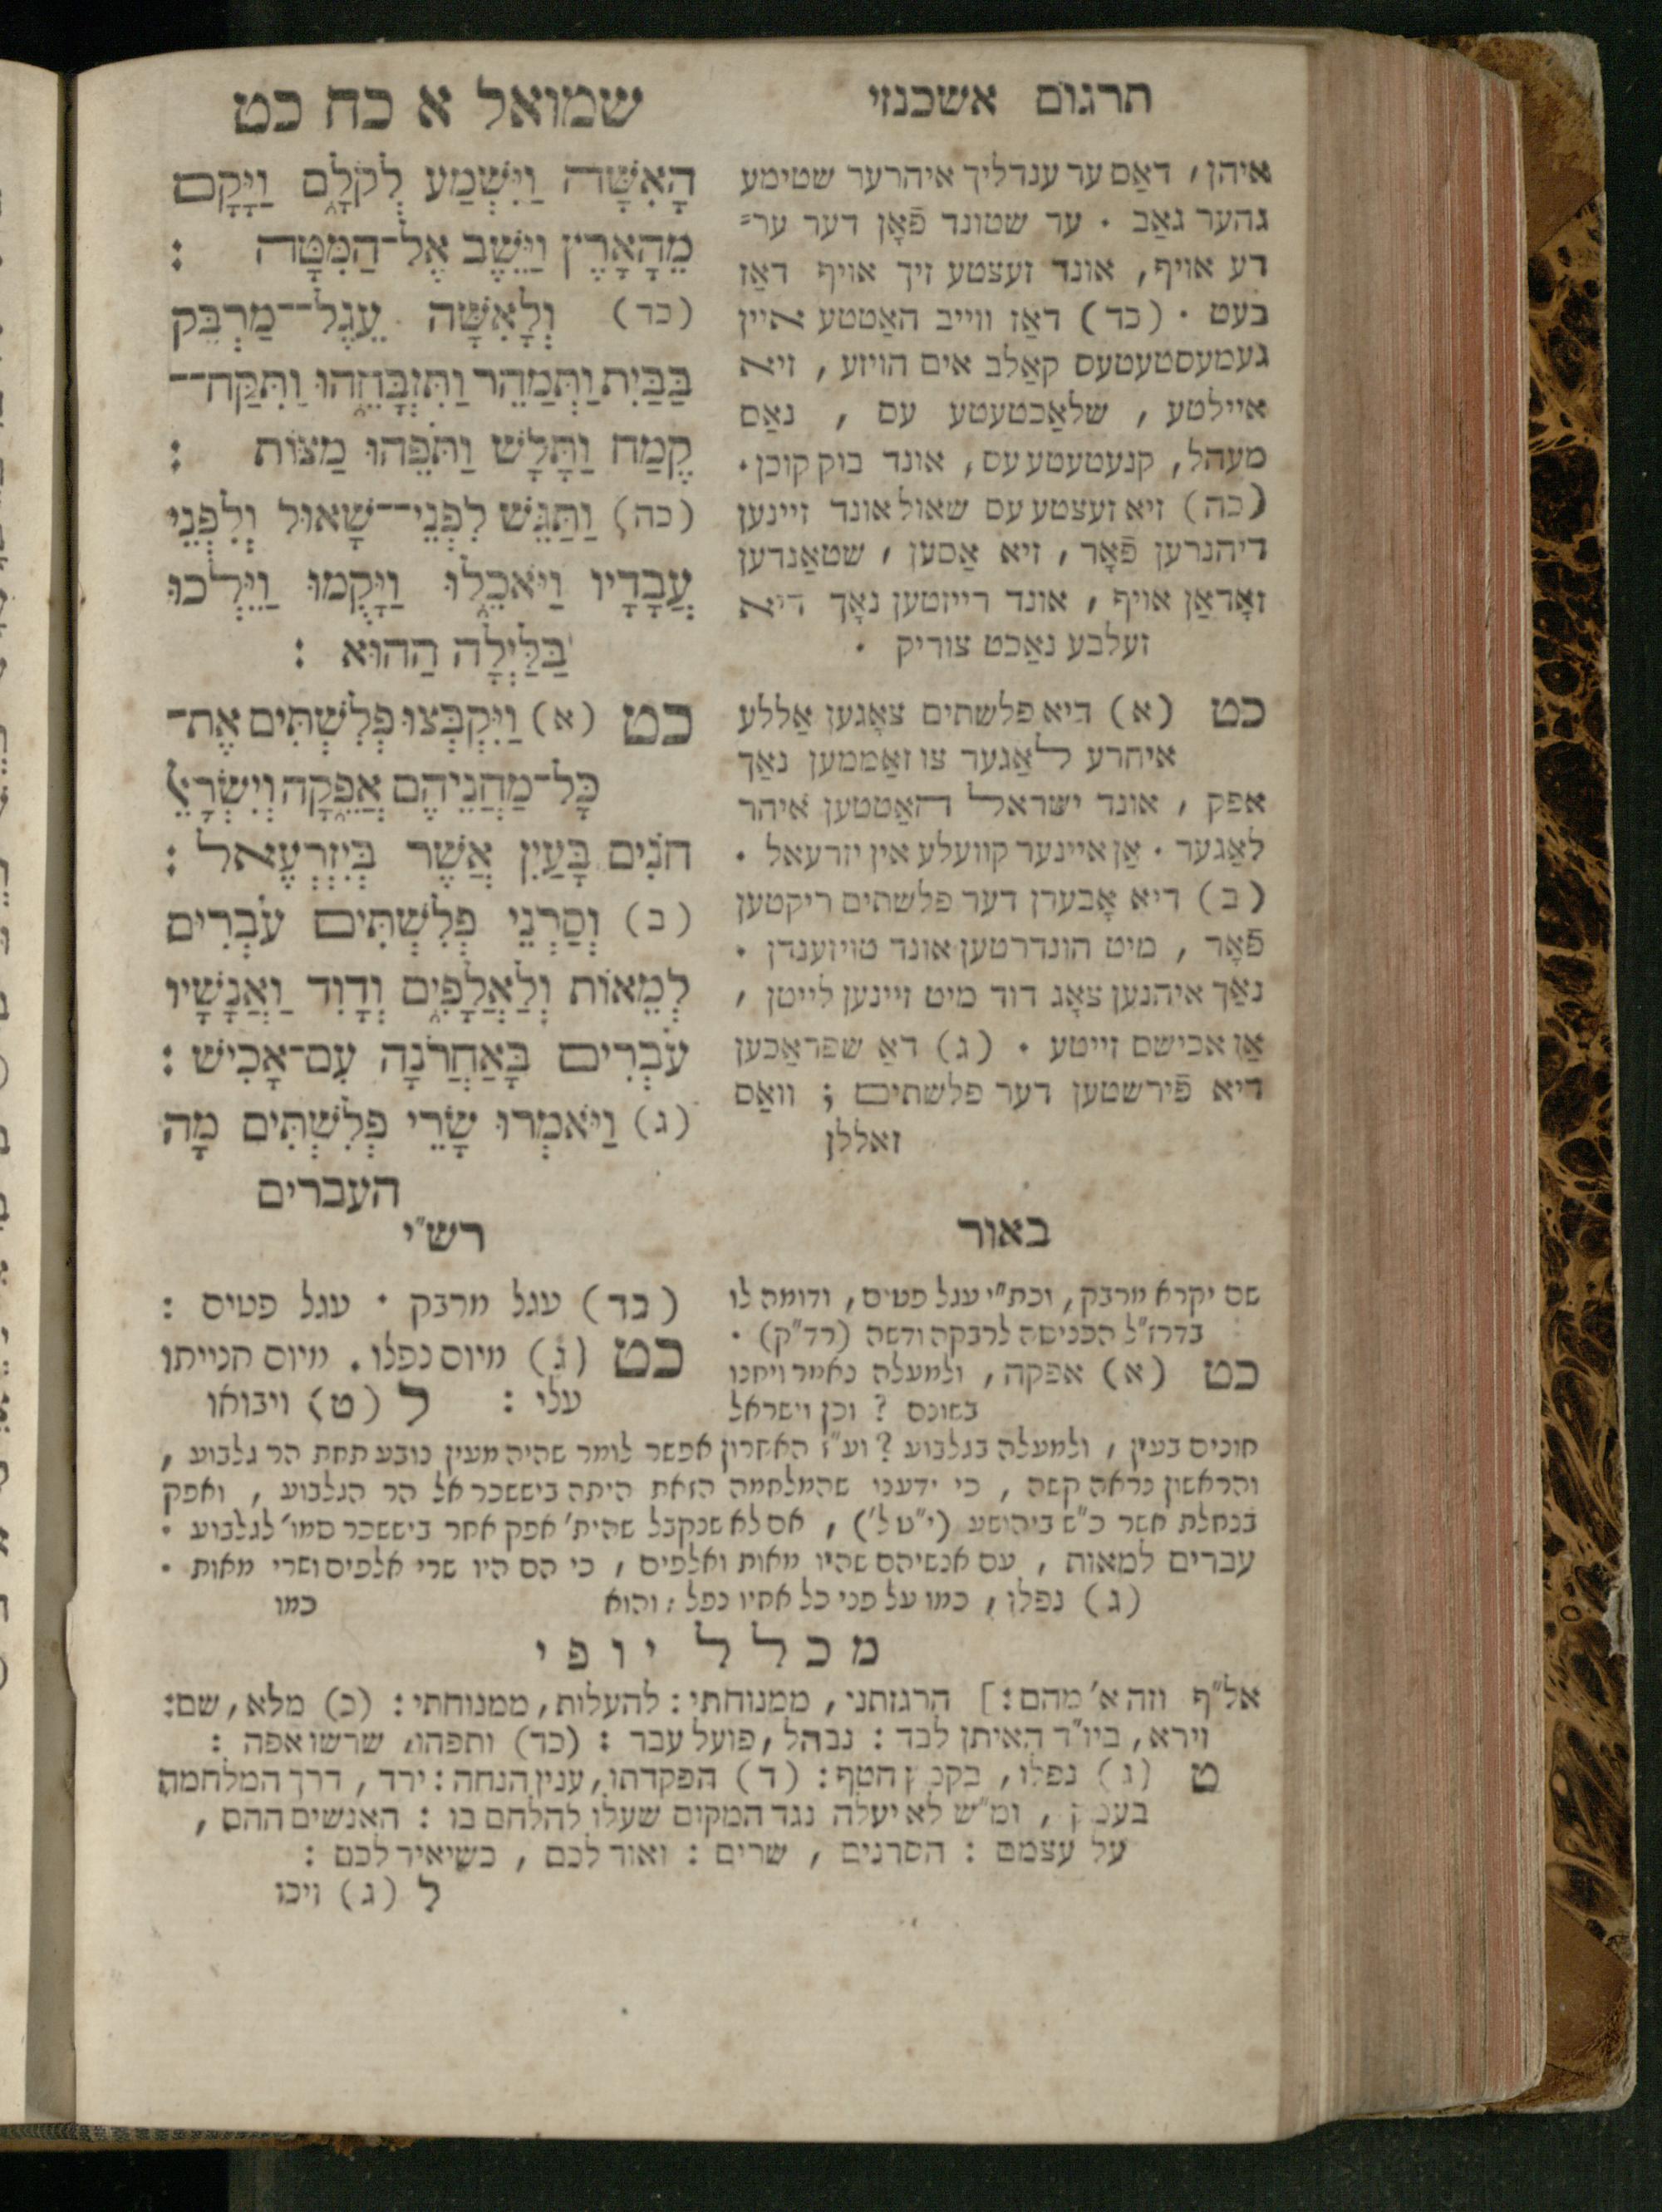 תרגום אשכנזי
איהן, דאַס ער ענדליך איהרער שטימע
גהער גאַב . ער שטונד פֿאָן דער ער⸗
דע אויף, אונד זעצטע זיך אויף דאַז
בעט . (כד) דאַז ווייב האַטטע איין
געמעסטעטעס קאַלב אים הויזע, זיא
איילטע, שלאַכטעטע עס, נאַם
מעהל, קנעטעטע עס, אונד בוק קוכן.
(כה) זיא זעצטע עס שאול אונד זיינען
דיהנרען פֿאָר, זיא אַסען, שטאַנדען
זאָדאַן אויף, אונד רייזטען נאָך דיא
זעלבע נאַכט צוריק .
כט (א) דיא פלשתים צאָגען אַללע
איהרע לאַגער צו זאַממען נאַך
אפק, אונד ישראל האַטטען איהר
לאַגער . אַן איינער קוועלע אין יזרעאל .
(ב) דיא אָבערן דער פלשתים ריקטען
פֿאָר, מיט הונדרטען אונד טויזענדן .
נאַך איהנען צאָג דוד מיט זיינען לייטן,
אַן אכישס זייטע . (ג) דאַ שפראַכען
דיא פֿירשטען דער פלשתים ; וואַס
זאללן
שמואל א כח כט
הָאִשָּׁה וַיִּשְׁמַע לְקֹלָ֑ם וַיָּקָם
מֵהָאָרֶץ וַיֵּשֶׁב אֶל־הַמִּטָּה :
(כד) וְלָאִשָּׁה עֵגֶל־מַרְבֵּק
בַּבַּיִת וַתְּמַהֵר וַתִּזְבָּחֵ֑הוּ וַתִּקַּח־
קֶמַח וַתָּלָשׁ וַתֹּפֵהוּ מַצּוֹת :
(כה) וַתַּגֵּשׁ לִפְנֵי־שָׁאוּל וְלִפְנֵי
עֲבָדָיו וַיֹּאכֵ֑לוּ וַיָּקֻמוּ וַיֵּלְכוּ
בַּלַּיְלָה הַהוּא :
כט (א) וַיִּקְבְּצוּ פְלִשְׁתִּים אֶת־
כָּל־מַחֲנֵיהֶם אֲפֵ֑קָה וְיִשְׂרָאֵל
חֹנִים בָּעַיִן אֲשֶׁר בְּיִזְרְעֶאל :
(ב) וְסַרְנֵי פְלִשְׁתִּים עֹבְרִים
לְמֵאוֹת וְלַאֲלָפִ֑ים וְדָוִד וַאֲנָשָׁיו
עֹבְרִים בָּאַחֲרֹנָה עִם־אָכִישׁ :
(ג) וַיֹּאמְרוּ שָׂרֵי פְלִשְׁתִּים מָה
העברים
באור
שם יקרא מרבק, וכת״י עגל פטים, ודומה לו
בדרז״ל הכניסה לרבקה ודשה (רד״ק) .
כט (א) אפקה, ולמעלה נאמר ויחנו
בשונם ? וכן וישראל
רש״י
(כד) עגל מרבק . עגל פטים :
כט (ג) מיום נפלו . מיום חנייתו
עלי : ל (ט) ויבואו
חונים בעין, ולמעלה בגלבוע ? וע״ז האחרון אפשר לומר שהיה מעין נובע תחת הר גלבוע,
והראשון נראה קשה, כי ידענו שהמלחמה הזאת היתה ביששכר אל הר הגלבוע, ואפק
בנחלת אשר כ״ש ביהושע (י״ט ל׳), אם לא שנקבל שהית׳ אפק אחר ביששכר סמו׳ לגלבוע .
עברים למאות, עם אנשיהם שהיו מאות ואלפים, כי הם היו שרי אלפים ושרי מאות .
(ג) נפלו, כמו על פני כל אחיו נפל : והוא כמו
מכלל יופי
אל״ף וזה א׳ מהם :] הרגזתני, ממנוחתי : להעלות, ממנוחתי : (כ) מלא, שם :
וירא, ביו״ד האיתן לבד : נבהל, פועל עבר : (כד) ותפהו, שרשו אפה :
ט (ג) נפלו, בקמץ חטף : (ד) הפקדתו, ענין הנחה : ירד, דרך המלחמה
בעמק, ומ״ש לא יעלה נגד המקום שעלו להלחם בו : האנשים ההם,
על עצמם : הסרנים, שרים : ואור לכם, כשיאיר לכם :
ל (ג) ויכו